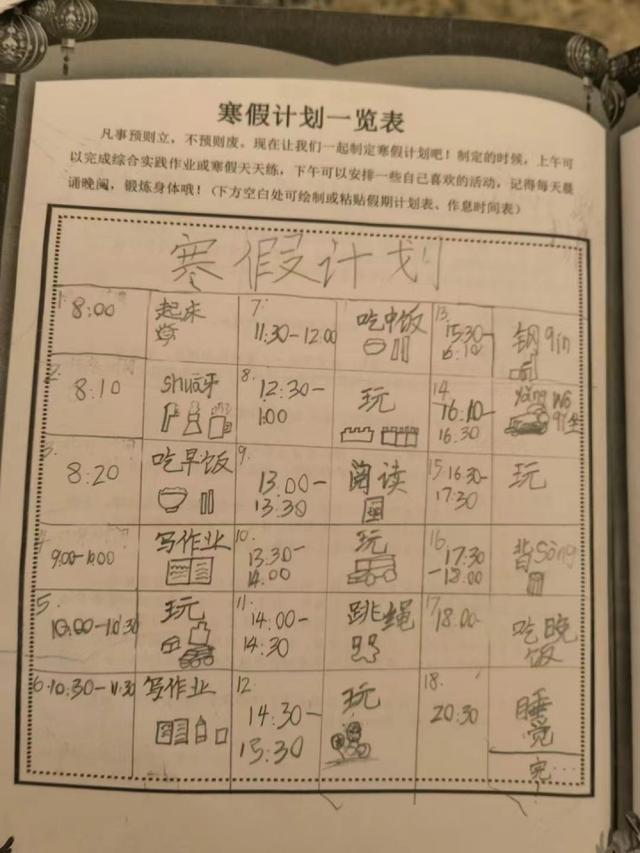 寒假计划一览表
凡事预则立，不预则废。现在让我们一起制定寒假计划吧！制定的时候，上午可
以完成综合实践作业或寒假天天练，下午可以安排一些自己喜欢的活动，记得每天晨
诵晚阅，锻炼身体哦！（下方空白处可绘制或粘贴假期计划表、作息时间表）
寒假计划
1. 8:00
起床
7.
11:30-12:00
吃中饭
13.
15:30-
16:10
钢qin
2.
8:10
shua牙
8.
12:30-
1:00
玩
14.
16:10-
16:30
yang
3.
8:20
吃早饭
9.
13:00-
13:30
阅读
15. 16:30-
17:30
玩
4.
9:00-10:00
写作业
10.
13:30-
14:00
玩
16.
17:30
-18:00
背Song
5.
10:00-10:30
玩
11.
14:00-
14:30
跳绳
17.
18:00
吃晚
饭
6. 10:30-11:30
写作业
12.
14:30-
15:30
玩
18.
20:30
睡
觉
完…